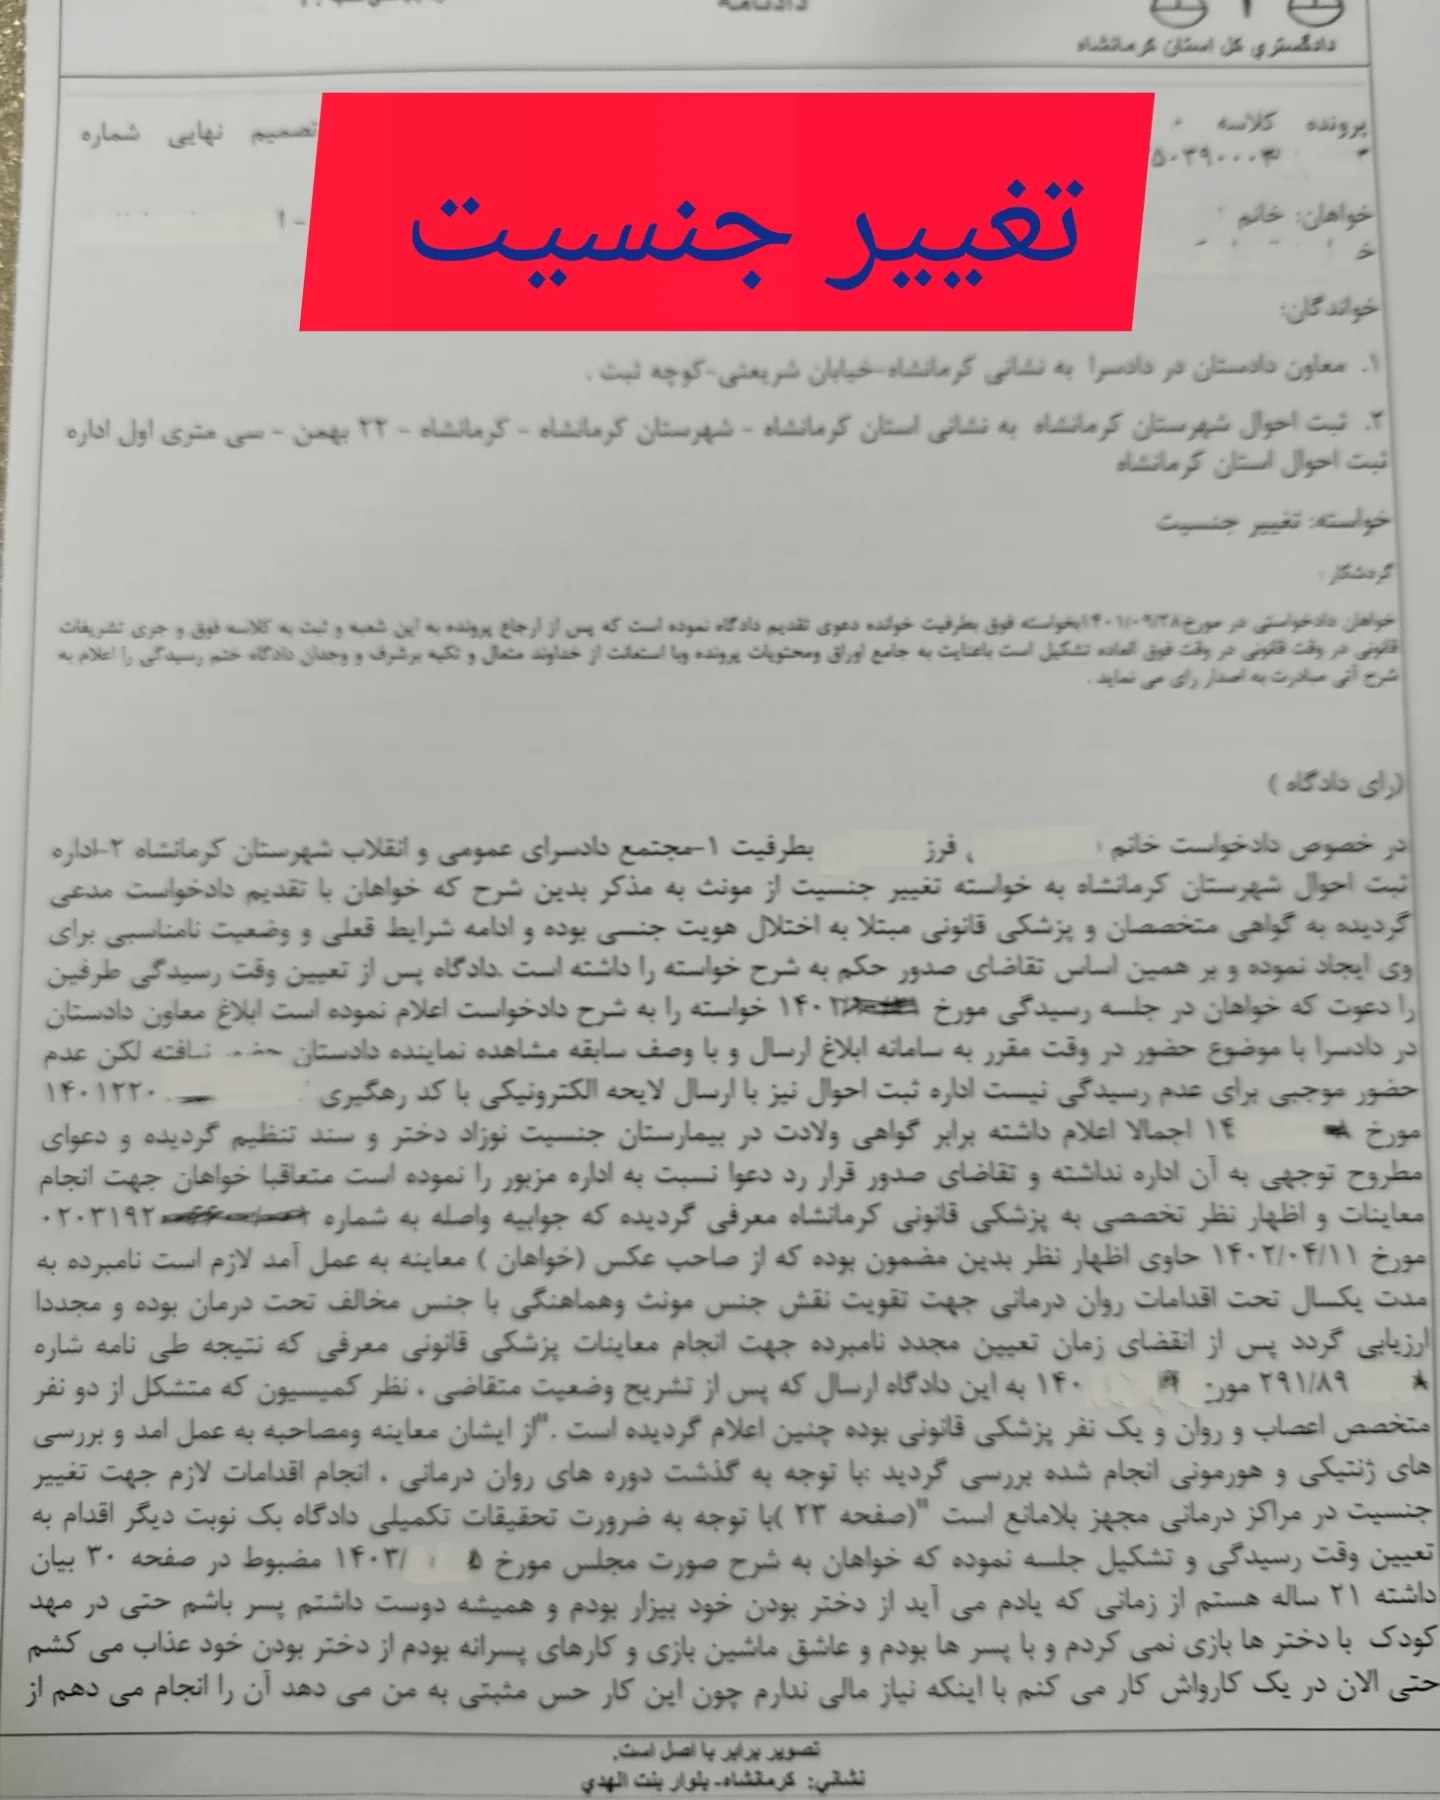 دادنامه
دادگستري کل استان کرمانشاه
پرونده کلاسه
تصمیم نهایی شماره
۵۰۳۹۰۰۰۳
تغییر جنسیت
خواهان: خانم
خواندگان:
۱. معاون دادستان در دادسرا به نشانی کرمانشاه-خیابان شریعتی-کوچه ثبت .
۲. ثبت احوال شهرستان کرمانشاه به نشانی استان کرمانشاه - شهرستان کرمانشاه - کرمانشاه - ۲۲ بهمن - سی متری اول اداره
ثبت احوال استان کرمانشاه
خواسته: تغییر جنسیت
گردشکار:
خواهان دادخواستی در مورخ۱۴۰۱/۰۹/۲۸بخواسته فوق بطرفیت خوانده دعوی تقدیم دادگاه نموده است که پس از ارجاع پرونده به این شعبه و ثبت به کلاسه فوق و جری تشریفات
قانونی در وقت قانونی در وقت فوق العاده تشکیل است باعنایت به جامع اوراق ومحتویات پرونده وبا استعانت از خداوند متعال و تکیه برشرف و وجدان دادگاه ختم رسیدگی را اعلام به
شرح آتی مبادرت به اصدار رای می نماید .
(رای دادگاه )
در خصوص دادخواست خانم فرز بطرفیت ۱-مجتمع دادسرای عمومی و انقلاب شهرستان کرمانشاه ۲-اداره
ثبت احوال شهرستان کرمانشاه به خواسته تغییر جنسیت از مونث به مذکر بدین شرح که خواهان با تقدیم دادخواست مدعی
گردیده به گواهی متخصصان و پزشکی قانونی مبتلا به اختلال هویت جنسی بوده و ادامه شرایط فعلی و وضعیت نامناسبی برای
وی ایجاد نموده و بر همین اساس تقاضای صدور حکم به شرح خواسته را داشته است .دادگاه پس از تعیین وقت رسیدگی طرفین
را دعوت که خواهان در جلسه رسیدگی مورخ ۱۴۰۲ خواسته را به شرح دادخواست اعلام نموده است ابلاغ معاون دادستان
در دادسرا با موضوع حضور در وقت مقرر به سامانه ابلاغ ارسال و با وصف سابقه مشاهده نماینده دادستان حضور نیافته لکن عدم
حضور موجبی برای عدم رسیدگی نیست اداره ثبت احوال نیز با ارسال لایحه الکترونیکی با کد رهگیری ۱۴۰۱۲۲۰
مورخ ۱۴ اجمالا اعلام داشته برابر گواهی ولادت در بیمارستان جنسیت نوزاد دختر و سند تنظیم گردیده و دعوای
مطروح توجهی به آن اداره نداشته و تقاضای صدور قرار رد دعوا نسبت به اداره مزبور را نموده است متعاقبا خواهان جهت انجام
معاینات و اظهار نظر تخصصی به پزشکی قانونی کرمانشاه معرفی گردیده که جوابیه واصله به شماره ۰۲۰۳۱۹۲
مورخ ۱۴۰۲/۰۴/۱۱ حاوی اظهار نظر بدین مضمون بوده که از صاحب عکس (خواهان ) معاینه به عمل آمد لازم است نامبرده به
مدت یکسال تحت اقدامات روان درمانی جهت تقویت نقش جنس مونث وهماهنگی با جنس مخالف تحت درمان بوده و مجددا
ارزیابی گردد پس از انقضای زمان تعیین مجدد نامبرده جهت انجام معاینات پزشکی قانونی معرفی که نتیجه طی نامه شاره
۲۹۱/۸۹ مورخ ۱۴۰ به این دادگاه ارسال که پس از تشریح وضعیت متقاضی ، نظر کمیسیون که متشکل از دو نفر
متخصص اعصاب و روان و یک نفر پزشکی قانونی بوده چنین اعلام گردیده است ."از ایشان معاینه ومصاحبه به عمل امد و بررسی
های ژنتیکی و هورمونی انجام شده بررسی گردید :با توجه به گذشت دوره های روان درمانی ، انجام اقدامات لازم جهت تغییر
جنسیت در مراکز درمانی مجهز بلامانع است "(صفحه ۲۳ )با توجه به ضرورت تحقیقات تکمیلی دادگاه یک نوبت دیگر اقدام به
تعیین وقت رسیدگی و تشکیل جلسه نموده که خواهان به شرح صورت مجلس مورخ ۵ /۱۴۰۳ مضبوط در صفحه ۳۰ بیان
داشته ۲۱ ساله هستم از زمانی که یادم می آید از دختر بودن خود بیزار بودم و همیشه دوست داشتم پسر باشم حتی در مهد
کودک با دختر ها بازی نمی کردم و با پسر ها بودم و عاشق ماشین بازی و کارهای پسرانه بودم از دختر بودن خود عذاب می کشم
حتی الان در یک کارواش کار می کنم با اینکه نیاز مالی ندارم چون این کار حس مثبتی به من می دهد آن را انجام می دهم از
تصویر برابر با اصل است.
نشاني: کرمانشاه- بلوار بنت الهدي